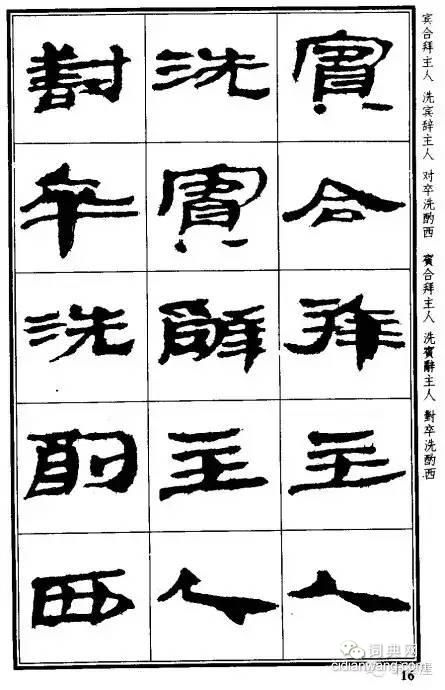 賓合拜主人
洗賓辭主人
對卒洗酌西
宾合拜主人 洗宾辞主人 对卒洗酌西 賓合拜主人 洗賓辭主人 對卒洗酌西
词典网
cidianwang.com
16